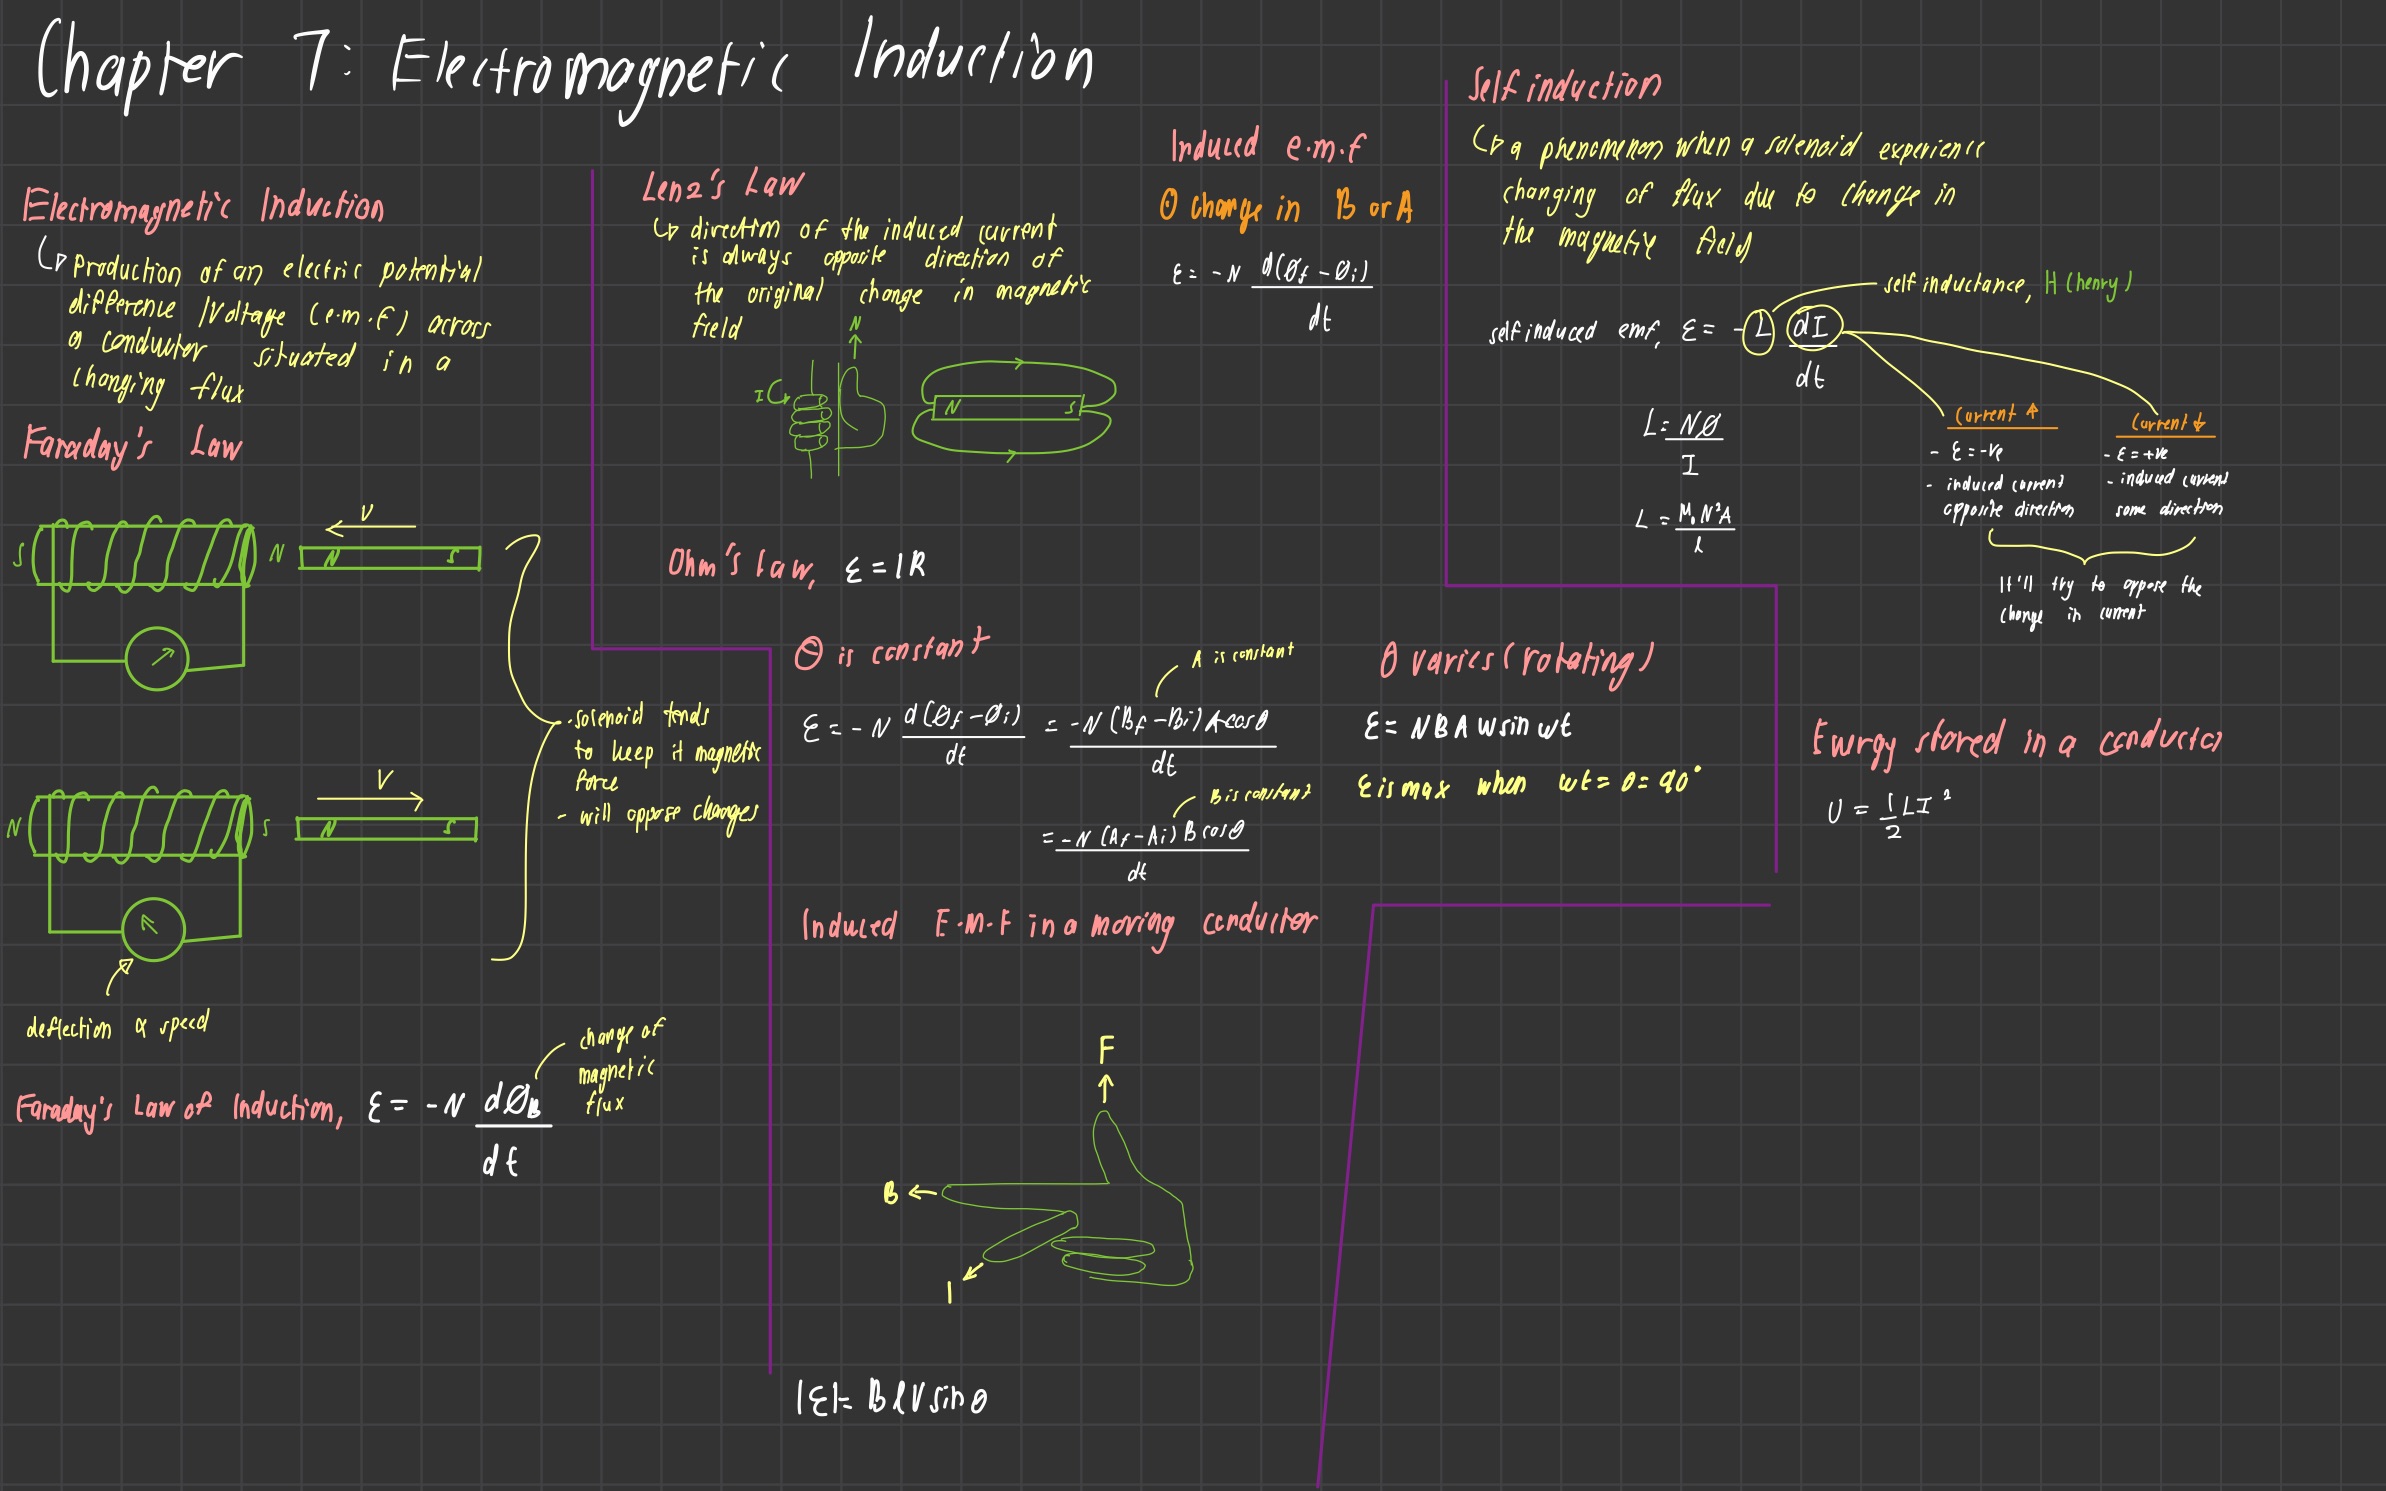 Chapter 7: Electromagnetic Induction
Electromagnetic Induction
↳ Production of an electric potential
difference /Voltage (e.m.f) across
a conductor situated in a
changing flux
Faraday's Law
V
S N N S
V
N S N S
deflection ∝ speed
- solenoid tends
to keep it magnetic
force
- will oppose changes
Faraday's Law of Induction, ε = -N dØB / dt
change of
magnetic
flux
Lenz's Law
↳ direction of the induced current
is always opposite direction of
the original change in magnetic
field
N
I
N S
Ohm's law, ε = IR
Induced e.m.f
θ change in B or A
ε = -N d(Øf - Øi) / dt
θ is constant
A is constant
ε = -N d(Øf - Øi) / dt = -N (Bf - Bi) A cosθ / dt
B is constant
= -N (Af - Ai) B cosθ / dt
θ varies (rotating)
ε = NBA w sin wt
ε is max when wt = θ = 90°
Induced E.M.F in a moving conductor
F
B
I
|ε| = BlVsinθ
Self induction
↳ a phenomenon when a solenoid experience
changing of flux due to change in
the magnetic field
self inductance, H (henry)
self induced emf, ε = -L dI / dt
L = NØ / I
L = M₀N²A / l
Current ↑
- ε = -ve
- induced current
opposite direction
Current ↓
- ε = +ve
- induced current
same direction
It'll try to oppose the
change in current
Energy stored in a conductor
U = 1/2 LI²